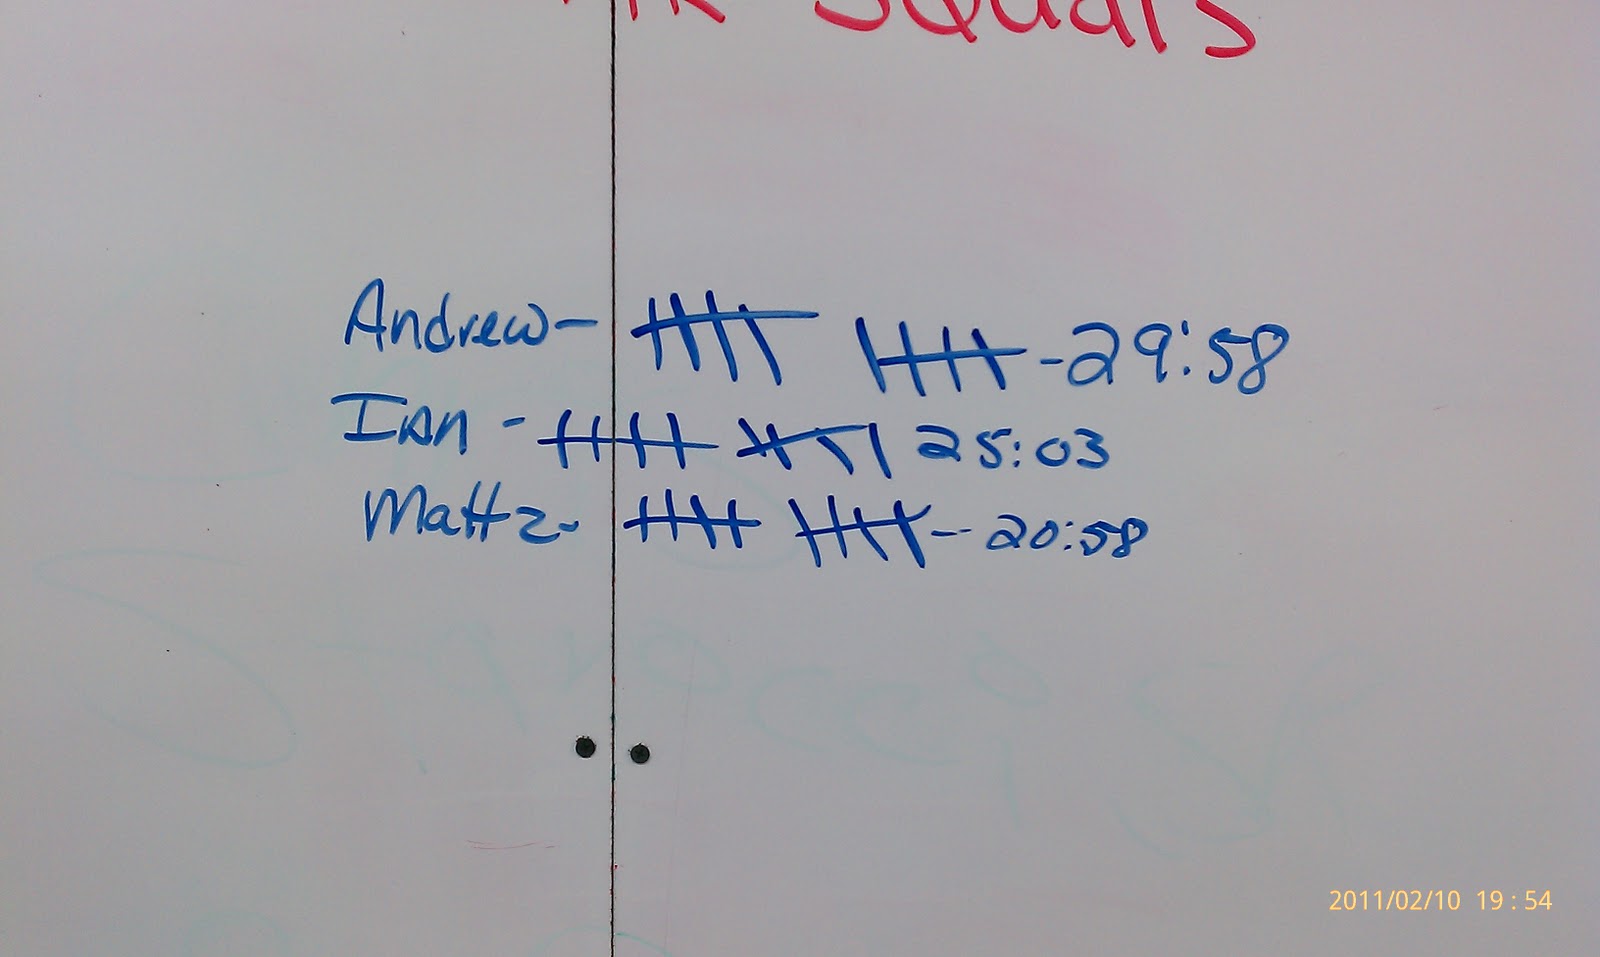 Air Squats
Andrew- 𝍸 𝍸 -29:58
Ian - 𝍸 𝍸 25:03
Matt z- 𝍸 𝍸 -- 20:58
2011/02/10 19:54